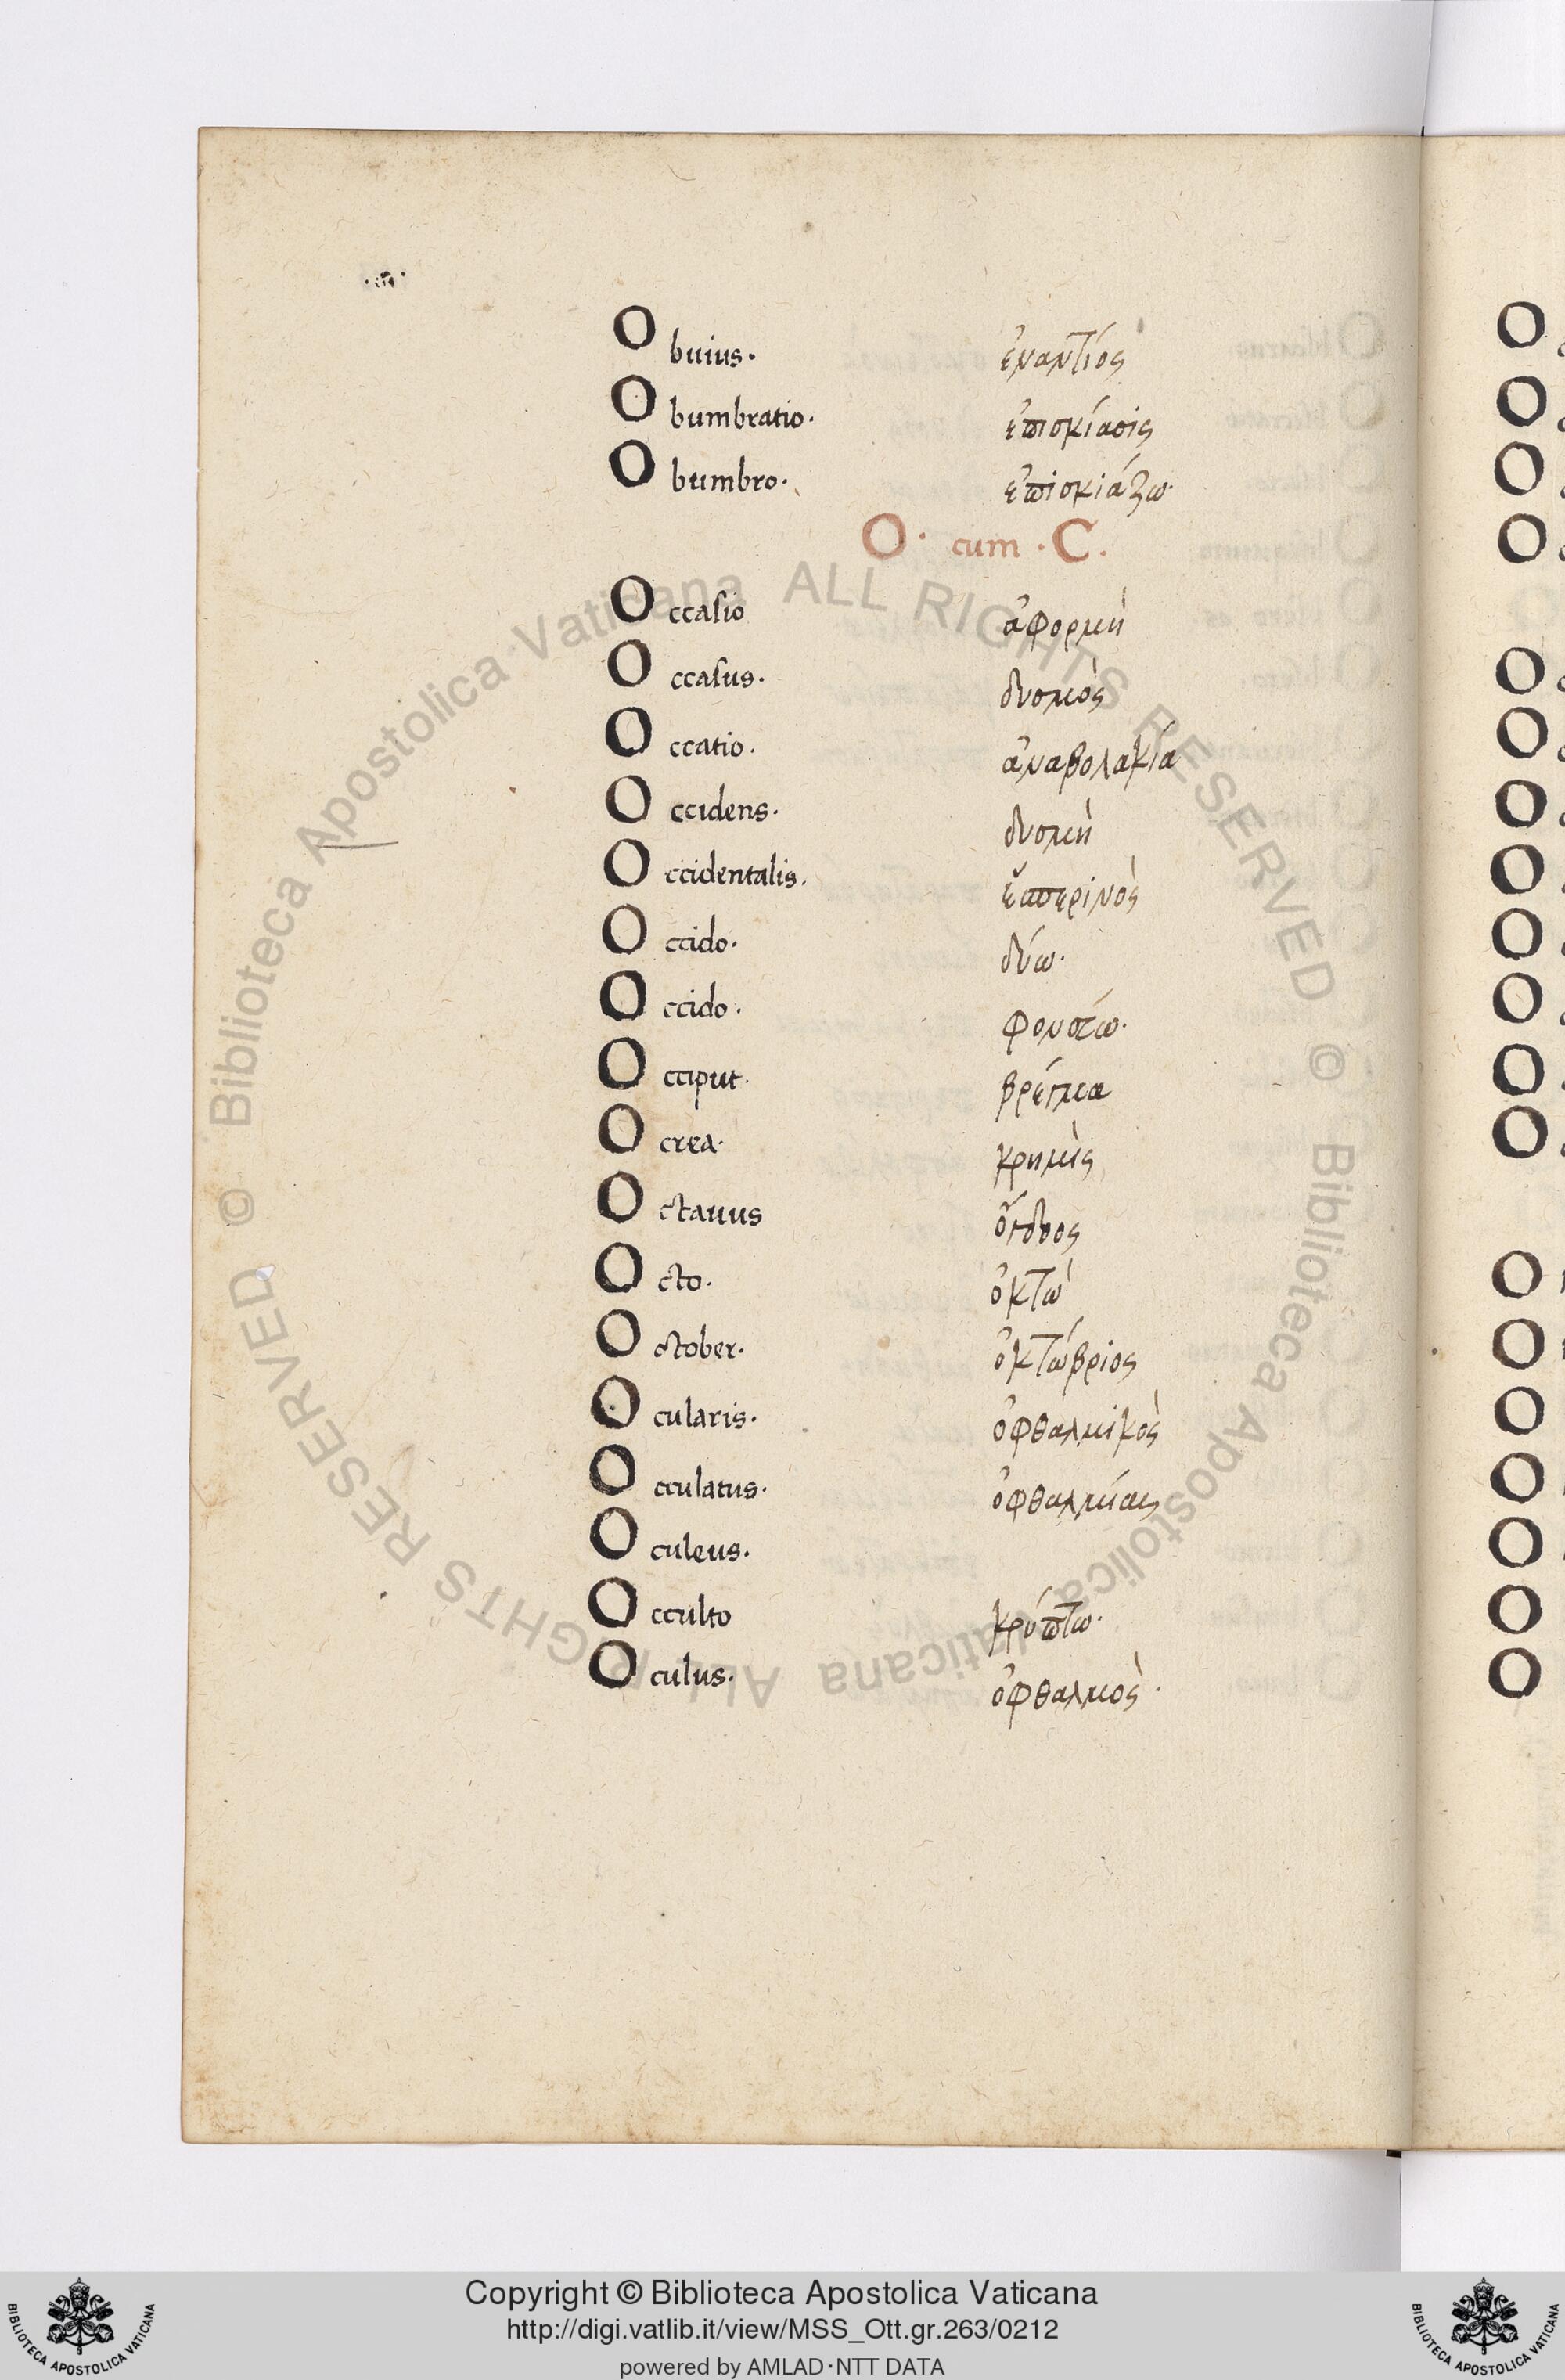 Obuius. ἐναντίος
Obumbratio. ἐπισκίασις
Obumbro. ἐπισκιάζω.
O. cum .C.
Occasio ἀφορμὴ
Occasus. δυσμὸς
Occatio. ἀναβολακία
Occidens. δυσμὴ
Occidentalis. ἑσπερινὸς
Occido. δύω.
Occido.
Occiput. βρέγμα
Ocrea. κρημὶς
Octauus ὄγδοος
Octo. ὀκτὼ
October. ὀκτώβριος
Ocularis. ὀφθαλμικὸς
Occulatus. ὀφθαλμίας
Oculeus.
Occulto κρύπτω.
Oculus. ὀφθαλμὸς.
© Biblioteca Apostolica Vaticana ALL RIGHTS RESERVED © Biblioteca Apostolica Vaticana ALL RIGHTS RESERVED
Copyright © Biblioteca Apostolica Vaticana
http://digi.vatlib.it/view/MSS_Ott.gr.263/0212
powered by AMLAD·NTT DATA
BIBLIOTECA APOSTOLICA VATICANA
BIBLIOTECA APOSTOLICA VATICANA